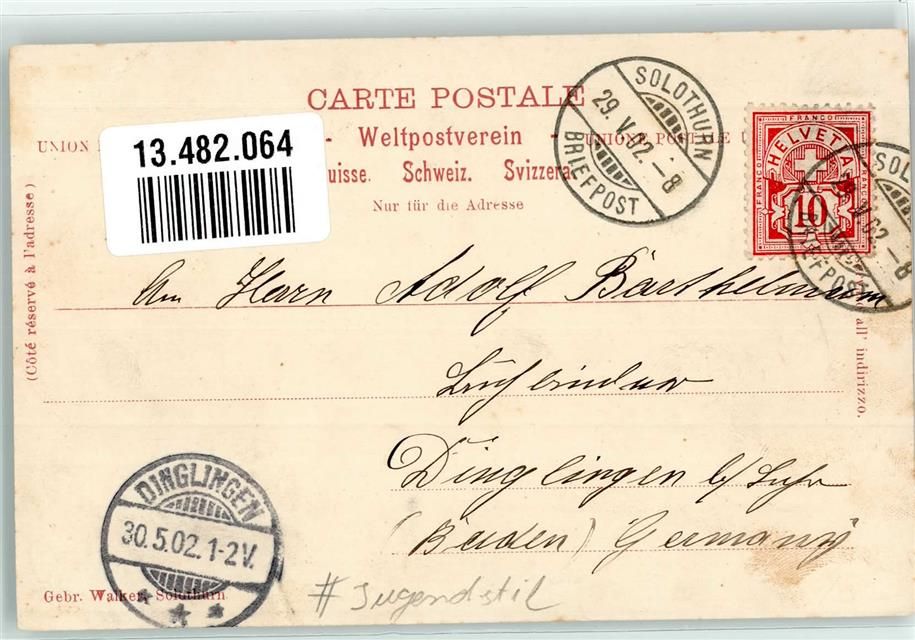 CARTE POSTALE
UNION - Weltpostverein - UNIONE POSTALE U
uisse. Schweiz. Svizzera.
Nur für die Adresse
13.482.064
SOLOTHURN
29. V. 02. - 8
BRIEFPOST
FRANCO
HELVETIA
FRANCO
FRANCO
10
SOL
02. - 8
BRIEFPOST
(Côté réservé à l'adresse)
all' indirizzo.
An Herrn Adolf Barthelmem
Dinglingen b/ Lahr
(Baden) Germany
DINGLINGEN
30.5.02.1-2V.
Gebr. Walker, Solothurn
#Jugendstil